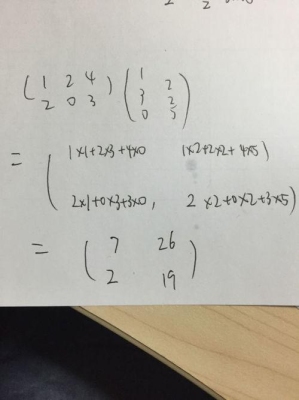 ( 1 2 4 ) ( 1 2
2 0 3 3 2
0 5 )
= ( 1×1+2×3+4×0 1×2+2×2+4×5 )
2×1+0×3+3×0, 2×2+0×2+3×5
= ( 7 26
2 19 )